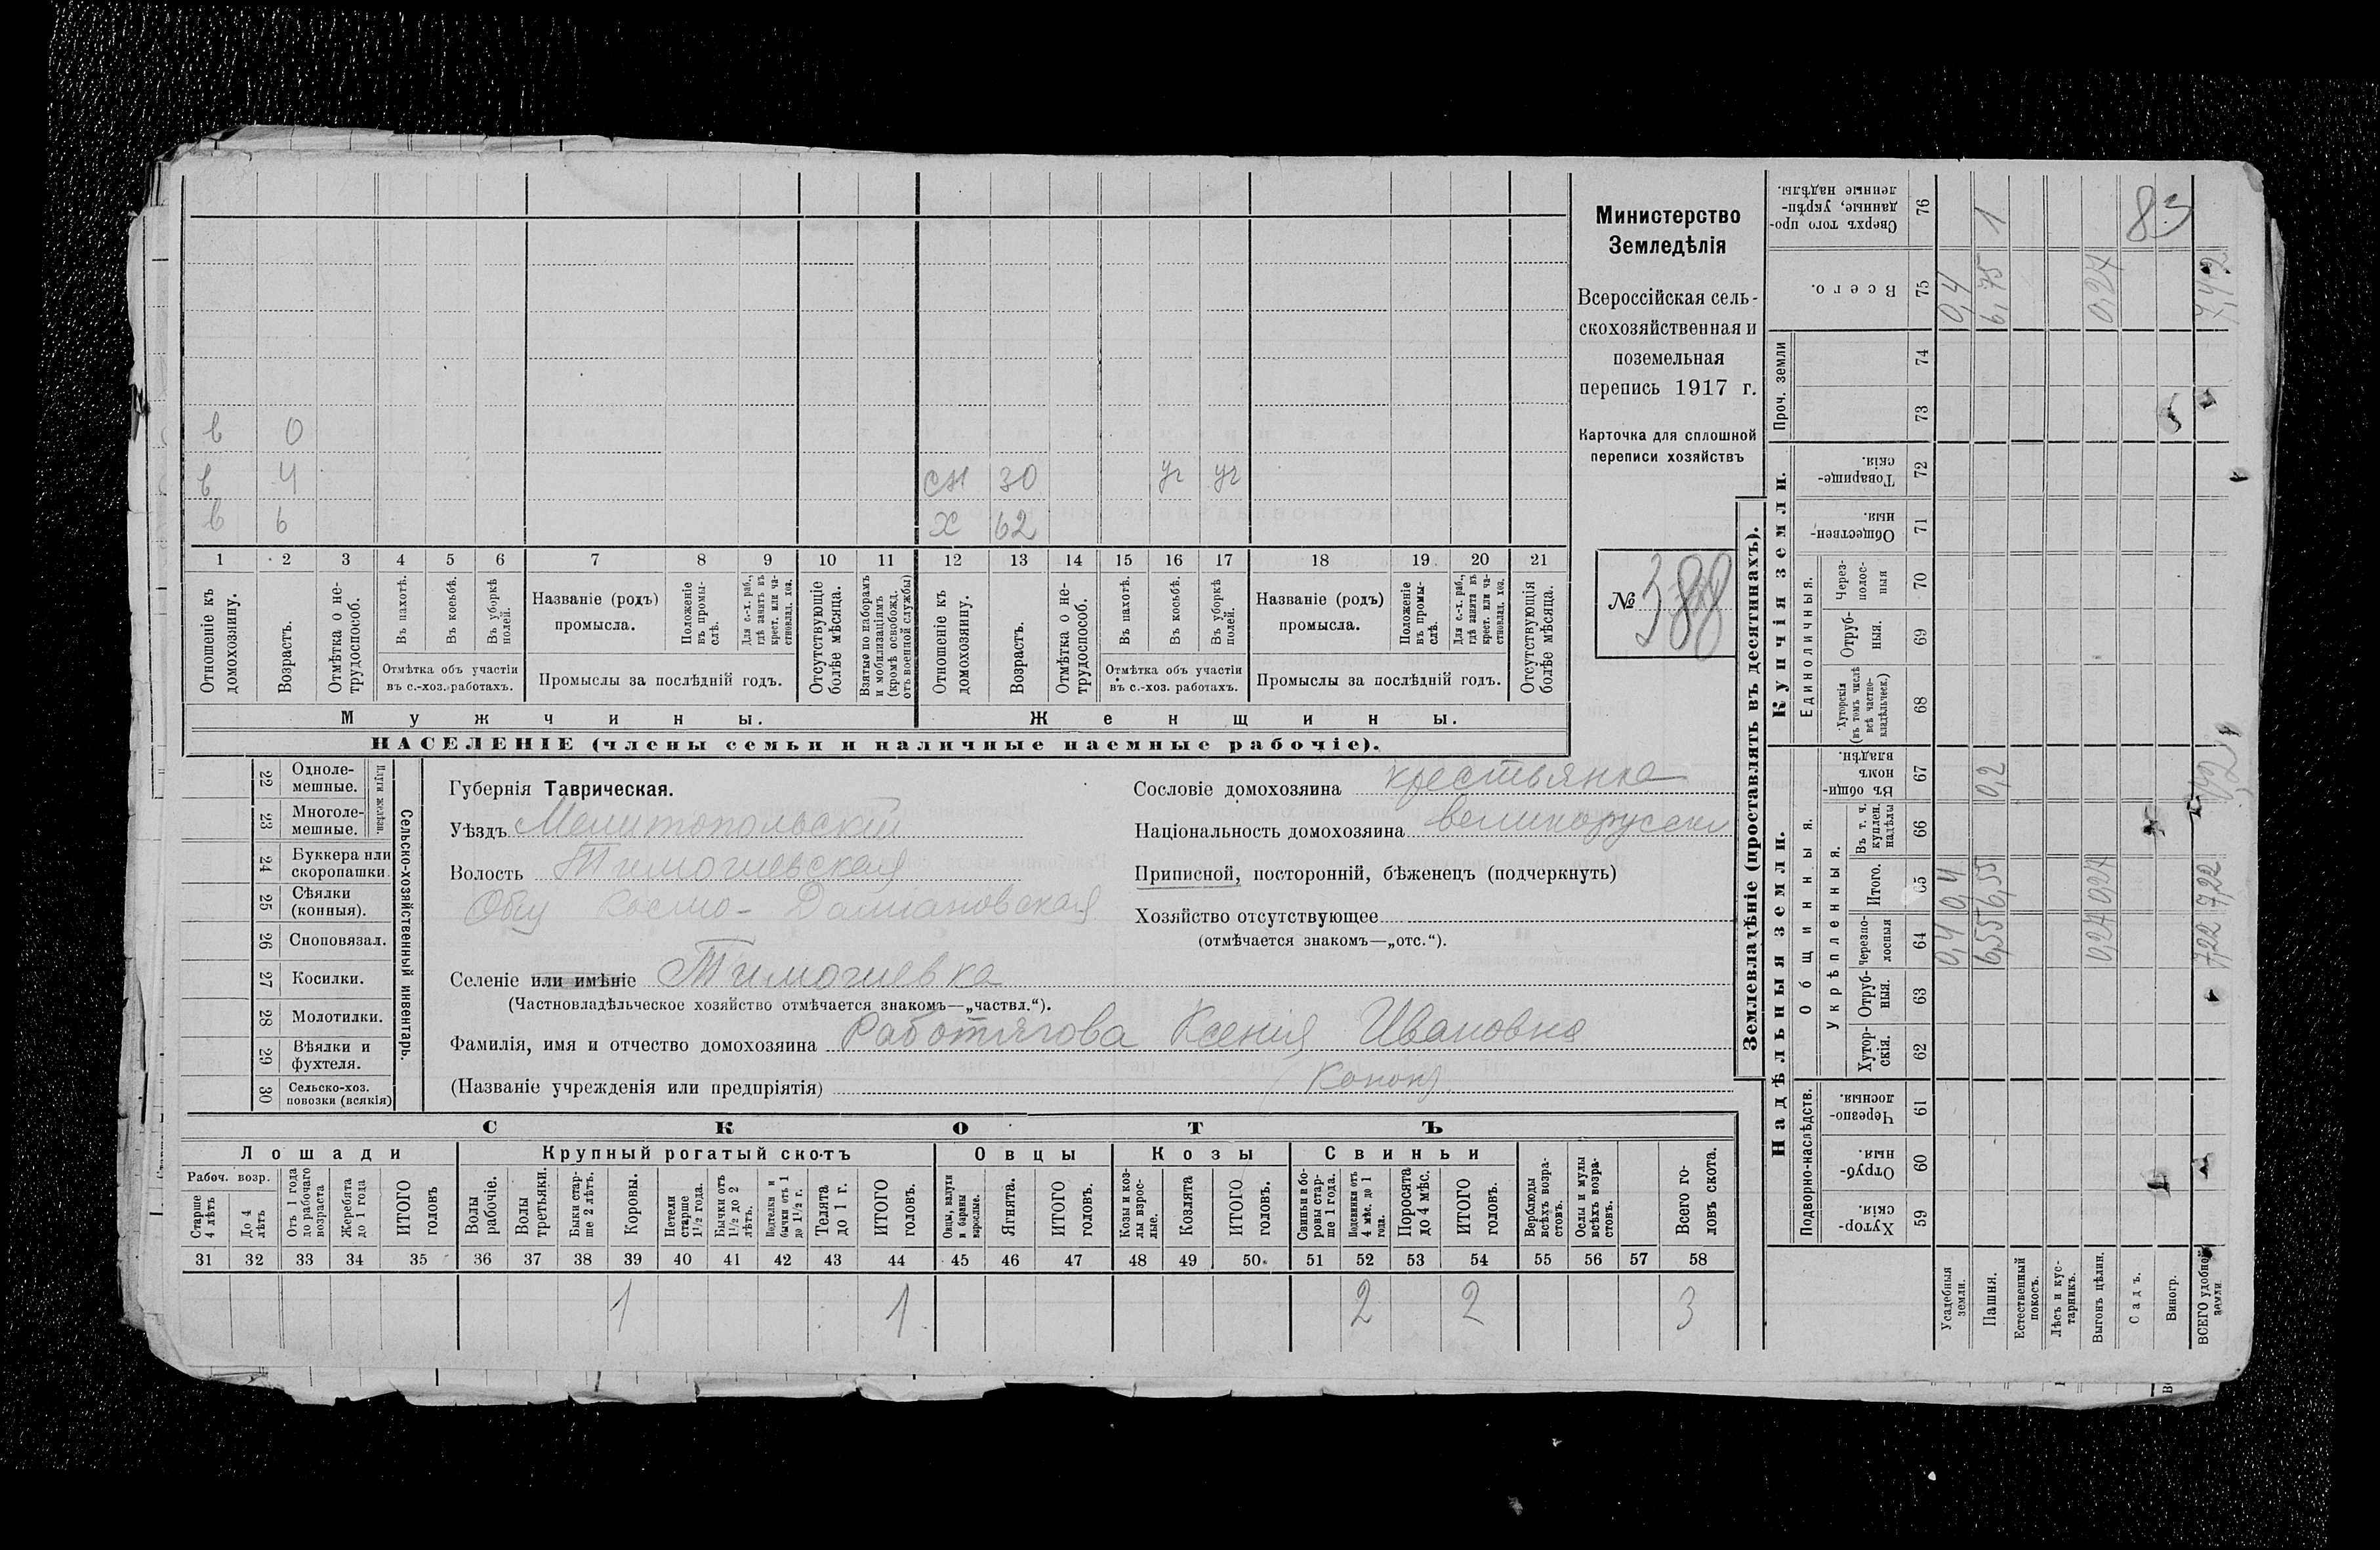 в 0
в 4 сн 30 уч уч
в 6 х 62
1 2 3 4 5 6 7 8 9 10 11 12 13 14 15 16 17 18 19 20 21
Отношеніе къ домохозяину.
Возрастъ.
Отмѣтка о не-трудоспособ.
Въ пахотѣ.
Въ косьбѣ.
Въ уборкѣ полей.
Отмѣтка объ участіи
въ с.-хоз. работахъ.
Названіе (родъ)
промысла.
Положеніе въ промы-слѣ.
Для с.-х. раб., гдѣ занятъ въ крест. или ча-стновлад. хоз.
Промыслы за послѣдній годъ.
Отсутствующіе болѣе мѣсяца.
Взятые по наборамъ и мобилизаціямъ (кромѣ освобожд. отъ военной службы)
Отношеніе къ домохозяину.
Возрастъ.
Отмѣтка о не-трудоспособ.
Въ пахотѣ.
Въ косьбѣ.
Въ уборкѣ полей.
Отмѣтка объ участіи
въ с.-хоз. работахъ.
Названіе (родъ)
промысла.
Положеніе въ промы-слѣ.
Для с.-х. раб., гдѣ занята въ крест. или ча-стновлад. хоз.
Промыслы за послѣдній годъ.
Отсутствующія болѣе мѣсяца.
Мужчины. Женщины.
НАСЕЛЕНІЕ (члены семьи и наличные наемные рабочіе).
Министерство
Земледѣлія
Всероссійская сель-
скохозяйственная и
поземельная
перепись 1917 г.
Карточка для сплошной
переписи хозяйствъ
№ 388
22 Одноле-мешные.
23 Многоле-мешные.
Плуги желѣзн.
24 Буккера или скоропашки.
25 Сѣялки (конныя).
26 Сноповязал.
27 Косилки.
28 Молотилки.
29 Вѣялки и фухтеля.
30 Сельско-хоз. повозки (всякія)
Сельско-хозяйственный инвентарь.
Губернія Таврическая.
Уѣздъ Мелитопольскій
Волость Тимошевская
Общ Космо-Даміановская
Селеніе или имѣніе Тимошевка
(Частновладѣльческое хозяйство отмѣчается знакомъ—„частвл.“).
Фамилія, имя и отчество домохозяина Работягова Ксенія Ивановна
(Названіе учрежденія или предпріятія)
Сословіе домохозяина крестьянка
Національность домохозяина
Приписной, посторонній, бѣженецъ (подчеркнуть)
Хозяйство отсутствующее
(отмѣчается знакомъ—„отс.“).
СКОТЪ
Лошади Крупный рогатый скотъ Овцы Козы Свиньи
Рабоч. возр.
Старше 4 лѣтъ
До 4 лѣтъ
Отъ 1 года до рабочаго возраста
Жеребята до 1 года
ИТОГО головъ
Волы рабочіе.
Волы третьяки.
Быки стар-ше 2 лѣтъ.
Коровы.
Нетели старше 1½ года.
Бычки отъ 1½ до 2 лѣтъ.
Подтелки и бычки отъ 1 до 1½ г.
Телята до 1 г.
ИТОГО головъ.
Овцы, валухи и бараны взрослые.
Ягнята.
ИТОГО головъ.
Козы и коз-лы взрос-лые.
Козлята
ИТОГО головъ.
Свиньи и бо-ровы стар-ше 1 года.
Подсвинки отъ 4 мѣс. до 1 года.
Поросята до 4 мѣс.
ИТОГО головъ.
Верблюды всѣхъ возра-стовъ.
Ослы и мулы всѣхъ возра-стовъ.
Всего го-ловъ скота.
31 32 33 34 35 36 37 38 39 40 41 42 43 44 45 46 47 48 49 50 51 52 53 54 55 56 57 58
1 1 2 2 3
Землевладѣніе (проставлять въ десятинахъ).
Надѣльныя земли. Купчія земли. Проч. земли
Подворно-наслѣдств. Общинныя. Единоличныя.
Укрѣпленныя.
Хутор-скія. 59
Отруб-ныя. 60
Черезпо-лосныя. 61
Хутор-скія. 62
Отруб-ныя. 63
Черезпо-лосныя 64
Итого. 65
Въ т. ч. куплен. надѣлы 66
Въ общи-номъ владѣн. 67
Хуторскія (въ томъ числѣ всѣ частно-владѣльческ.) 68
Отруб-ныя. 69
Через-полос-ныя 70
Обществен-ныя. 71
Товарище-скія. 72
73
74
Всего. 75
Сверхъ того про-данные, укрѣп-ленные надѣлы. 76
Усадебныя земли. 0,4 0,4 0,4
Пашня. 6,55 6,55 0,2 6,75 1
Естественный покосъ.
Лѣсъ и кус-тарникъ.
Выгонъ цѣлин. 0,27 0,27 0,27
Садъ. 83
Виногр.
ВСЕГО удобной земли 7,22 7,22 0,2 7,42